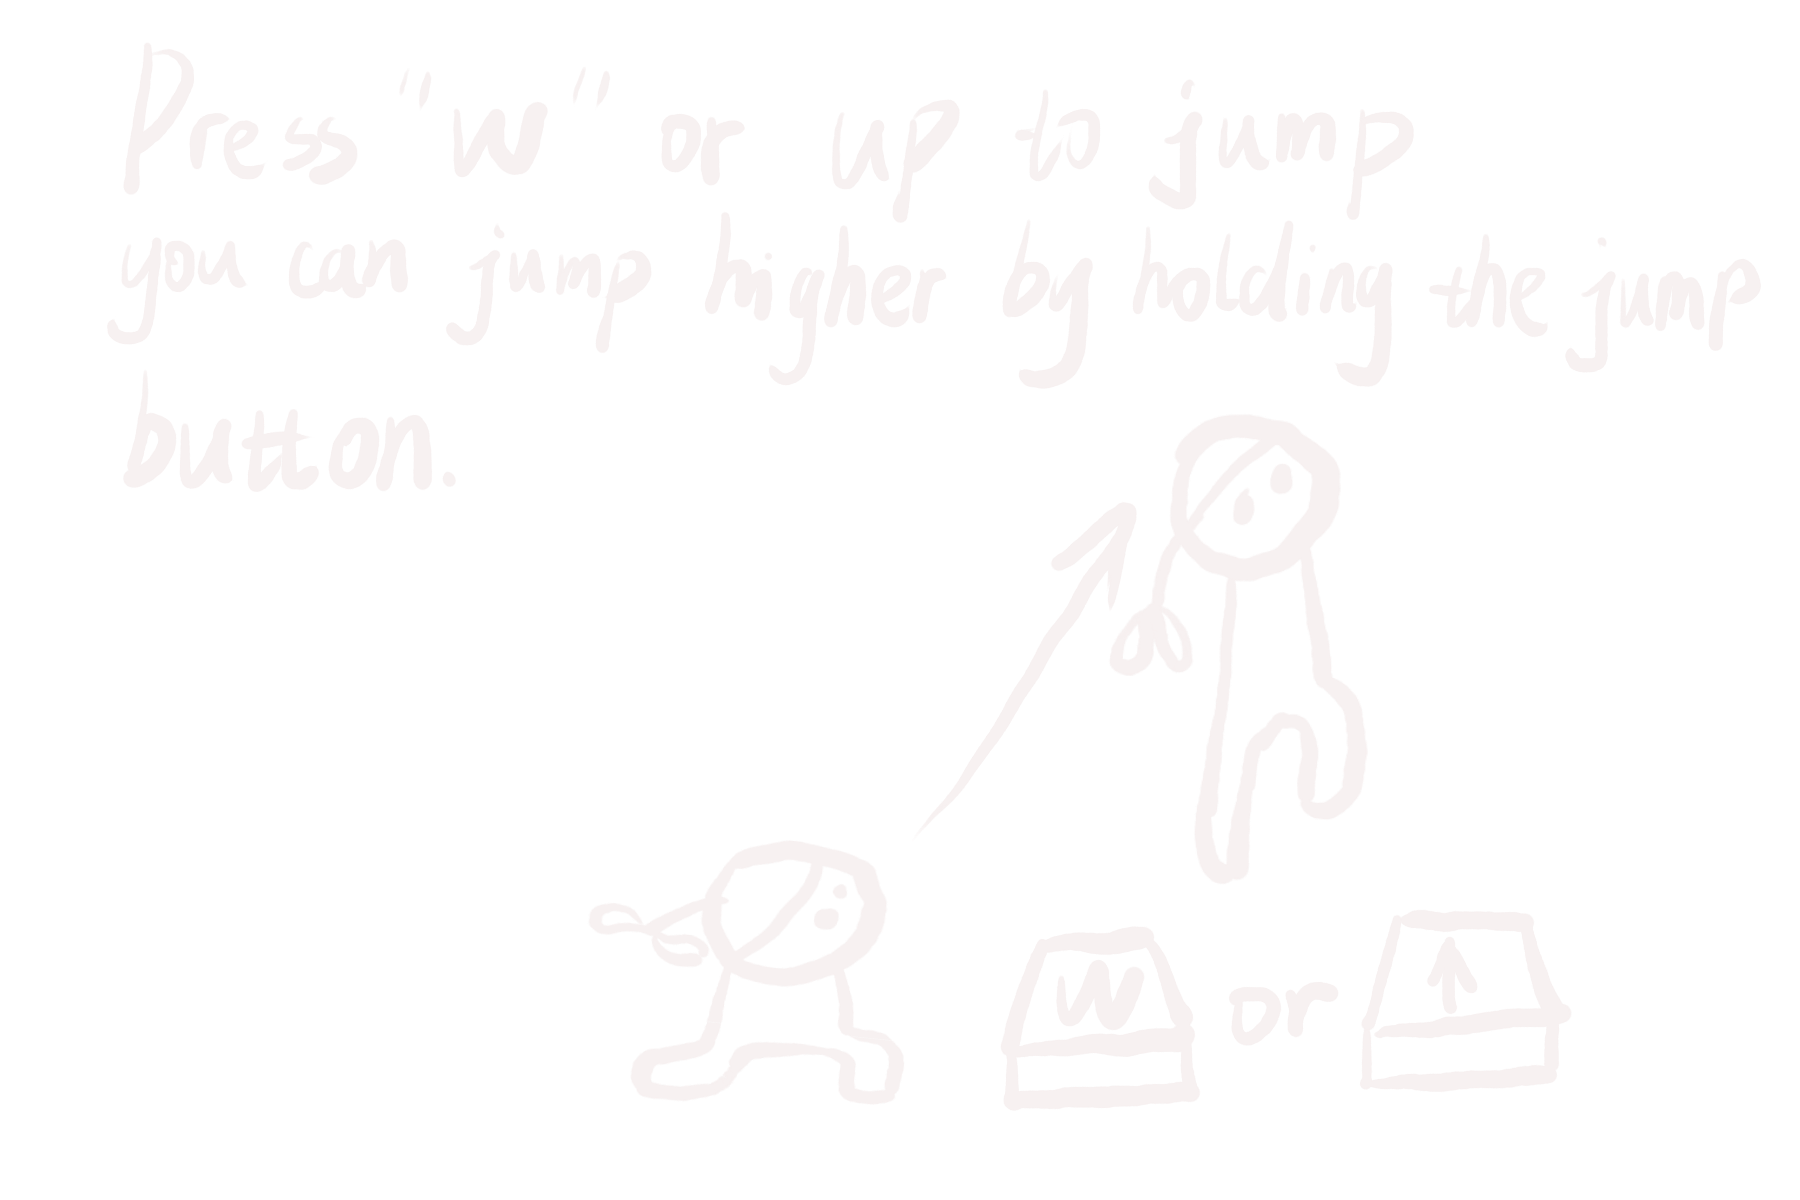 Press "W" or up to jump
you can jump higher by holding the jump
button.
W or ↑